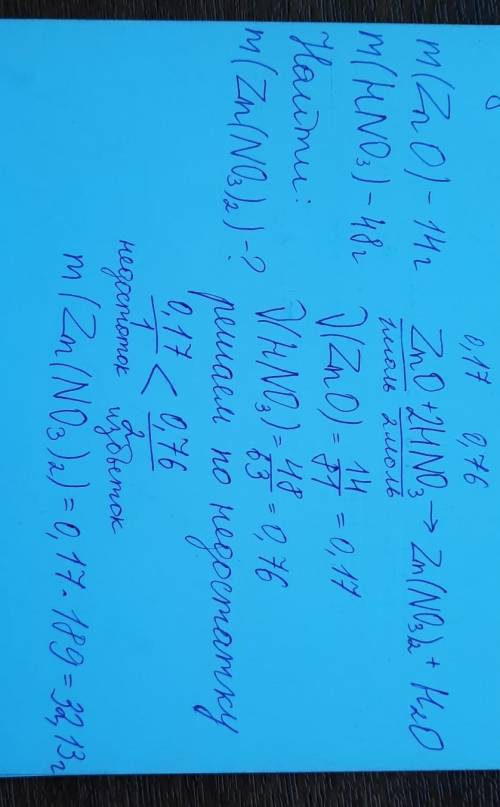 m(ZnO) – 14г
m(HNO₃) – 48г
Найти:
m(Zn(NO₃)₂) – ?
0,17 0,76
ZnO + 2HNO₃ → Zn(NO₃)₂ + H₂O
1моль 2моль
ν(ZnO) = 14/81 = 0,17
ν(HNO₃) = 48/63 = 0,76
решаем по недостатку
0,17/1 < 0,76/2
недостаток избыток
m(Zn(NO₃)₂) = 0,17 · 189 = 32,13г